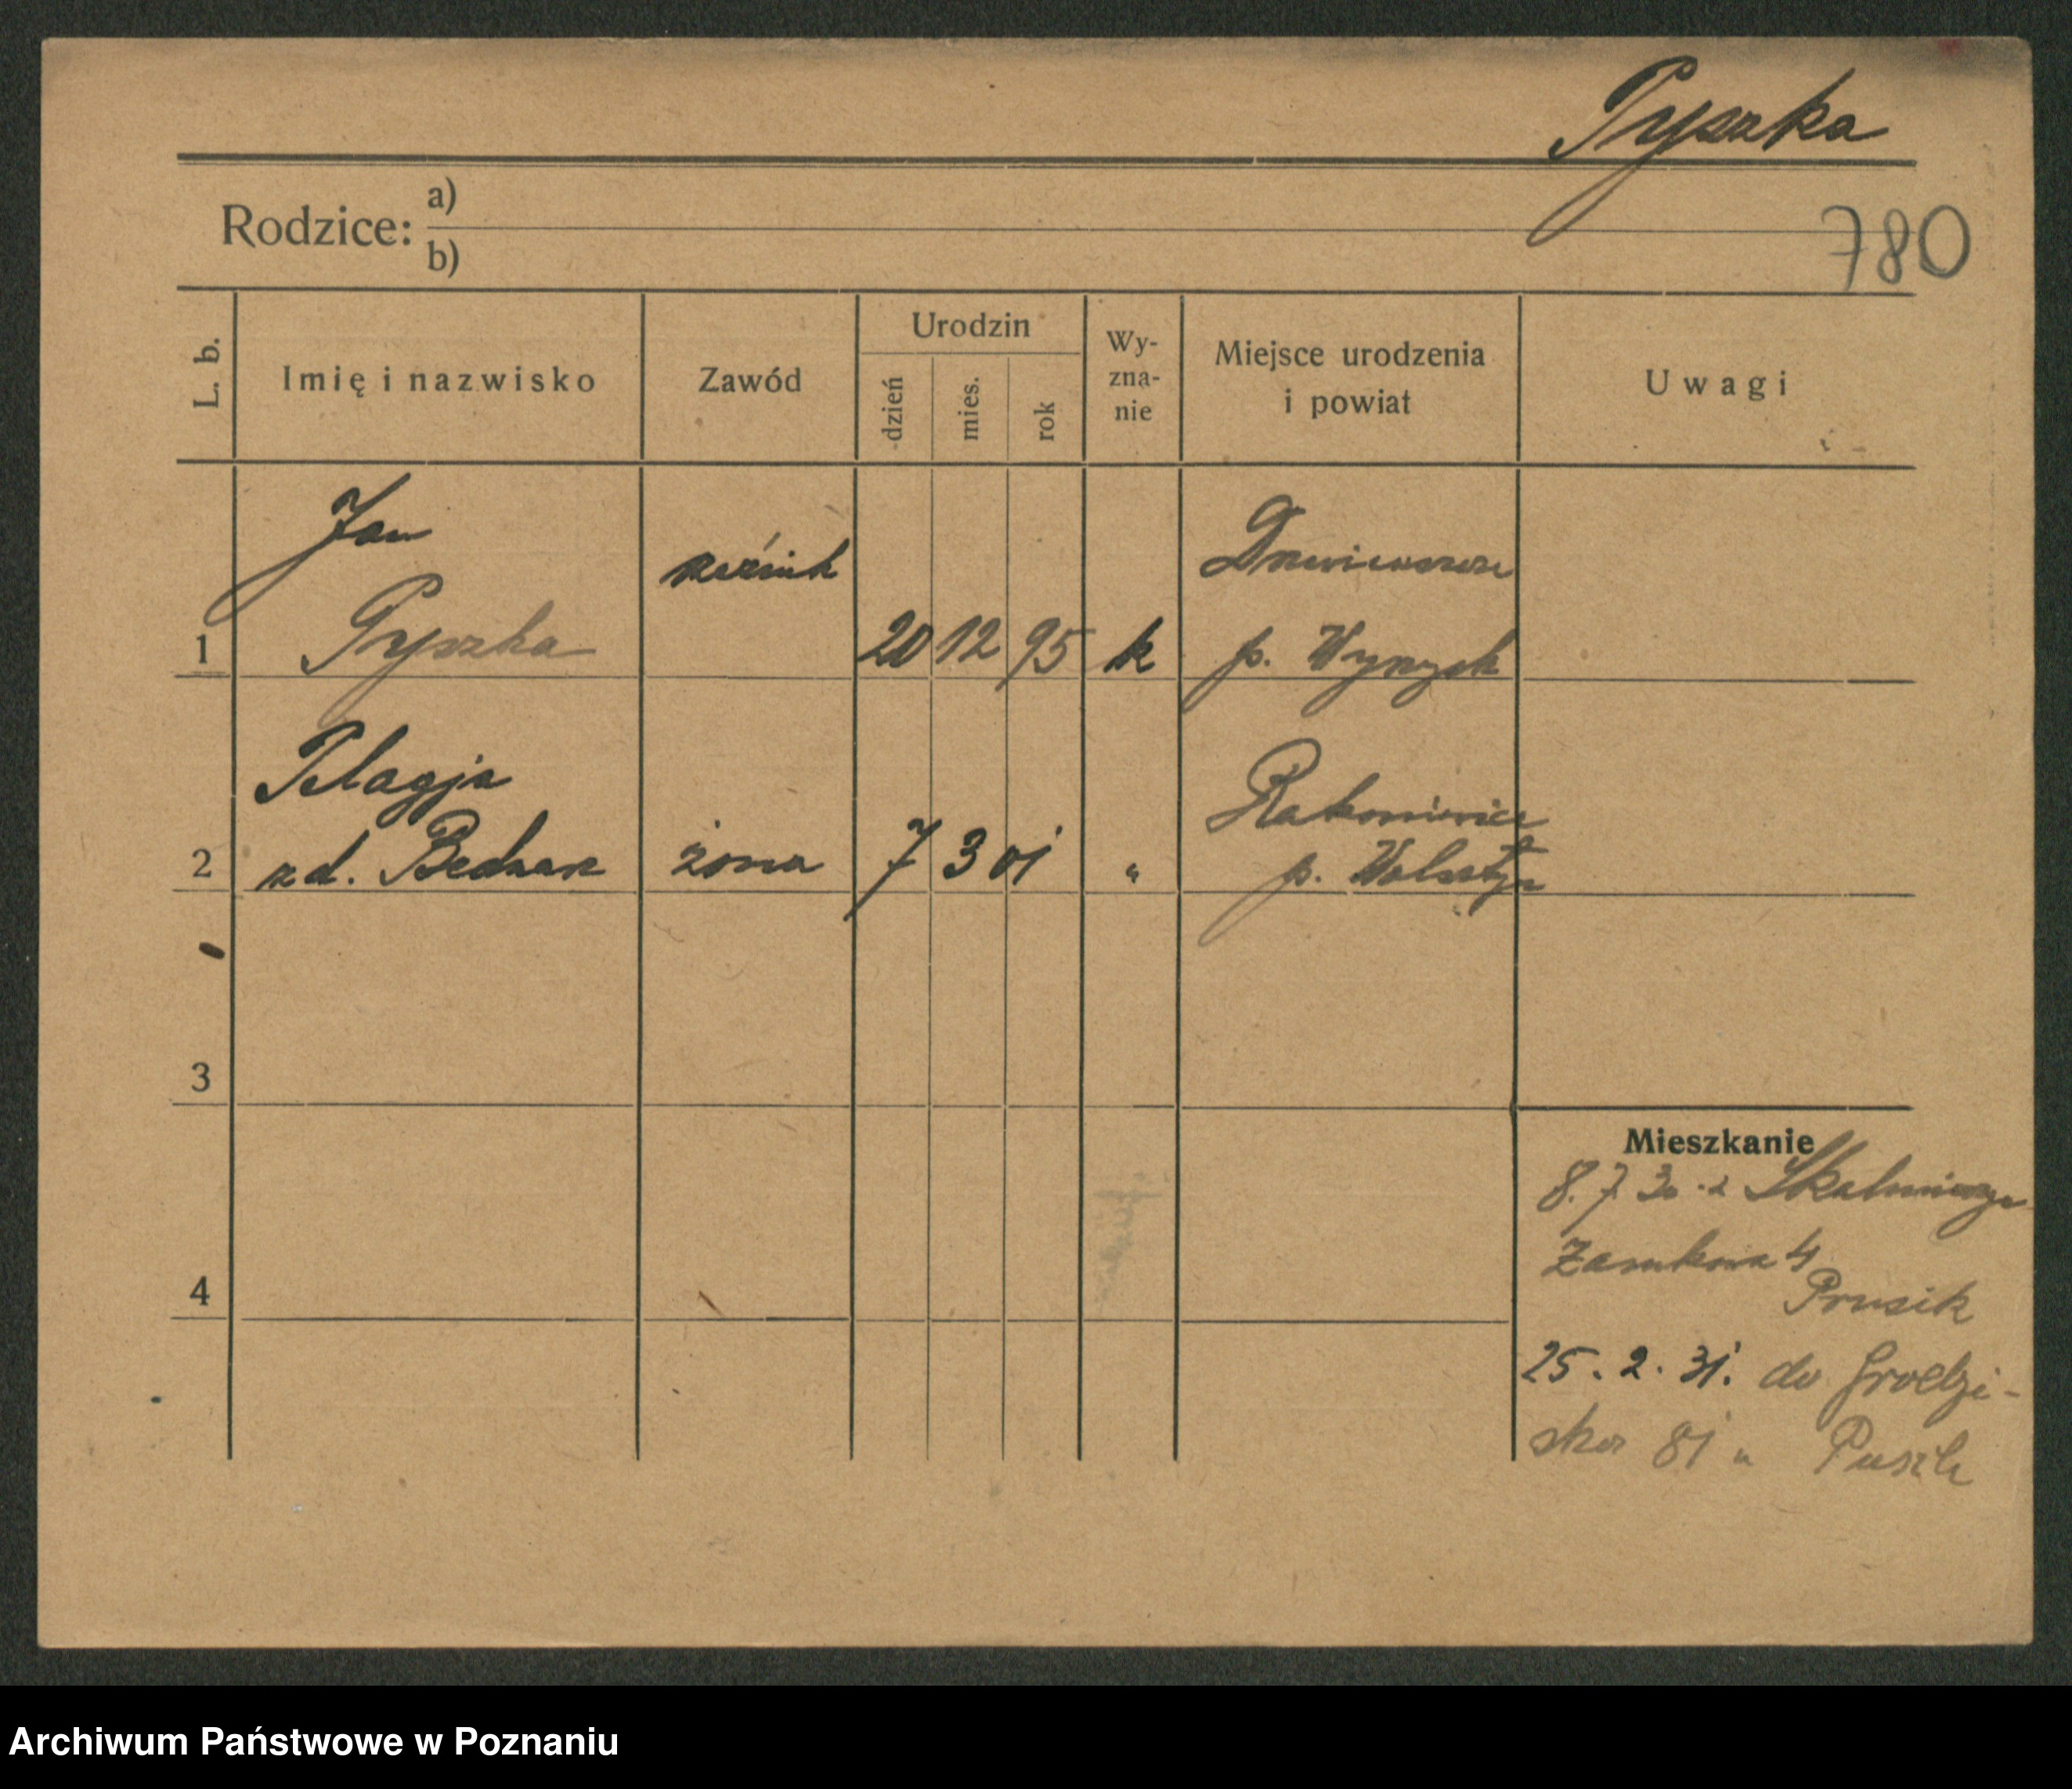 Pyszka
Rodzice: a)
b)
780
L. b.
Imię i nazwisko
Zawód
Urodzin
dzień
mies.
rok
Wy-
zna-
nie
Miejsce urodzenia
i powiat
Uwagi
Jan
rzeźnik
1 Pyszka 20 12 95 k p. Wyrzysk
Pelagja
Rakoniewice
2 zd. Bednarz żona 7 3 01 " p. Wolsztyn
3
Mieszkanie
8. 7 30 z Skalmierzyc
Zamkowa 4
4
Prusik
25. 2. 31. do Grodzi-
ska 81 u
Archiwum Państwowe w Poznaniu